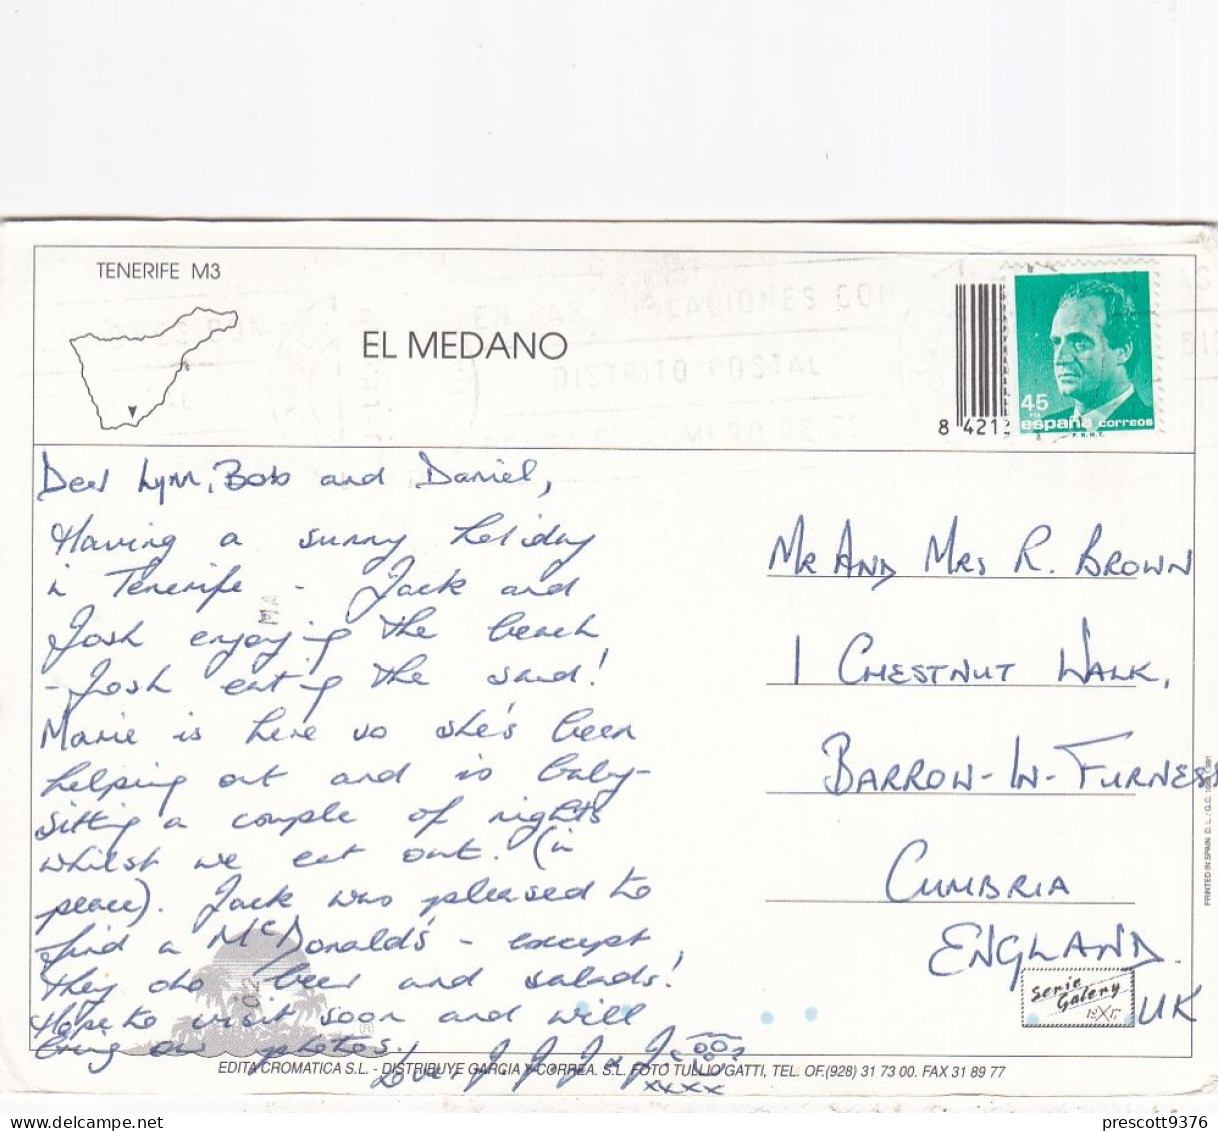 TENERIFE M3
EL MEDANO
EN LAS RELACIONES CON
DISTRITO POSTAL
NUMERO DE
8 4212
45
PTA
españa correos
F.N.M.T.
Dear Lynn, Bob and Daniel,
Having a sunny holiday
in Tenerife - Jack and
Josh enjoying the beach
- Josh eating the sand!
Marie is here so she's been
helping out and is baby-
sitting a couple of nights
whilst we eat out. (in
peace). Jack was pleased to
find a McDonald's - except
they do beer and salads!
Hope to visit soon and will
bring our photos.
Love J, J, J & J
xxxx
MR AND MRS R. BROWN
1 CHESTNUT WALK,
BARROW-IN-FURNESS
CUMBRIA
ENGLAND.
UK
Serie
Galery
12X17
EDITA CROMATICA S.L. - DISTRIBUYE GARCIA Y CORREA. S.L. FOTO TULLIO GATTI, TEL. OF.(928) 31 73 00. FAX 31 89 77
PRINTED IN SPAIN D. L. / G.C.
prescott9376